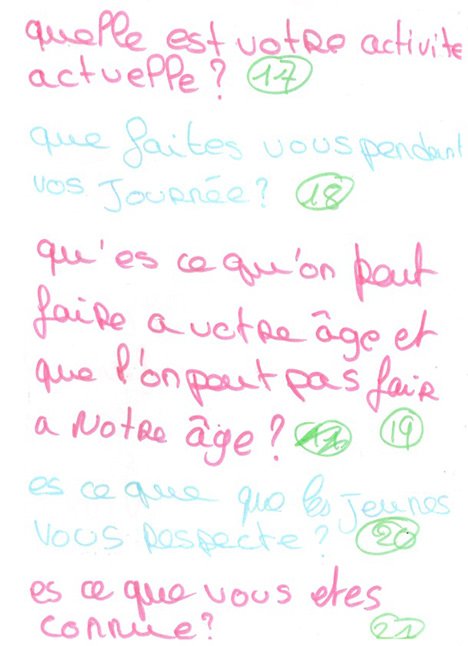 quelle est votre activite
actuelle? 17
que faites vous pendant
vos journée? 18
qu'es ce qu'on peut
faire a votre âge et
que l'on peut pas fair
a notre âge? 19
es ce que que les jeunes
vous respecte? 20
es ce que vous etes
connue? 21